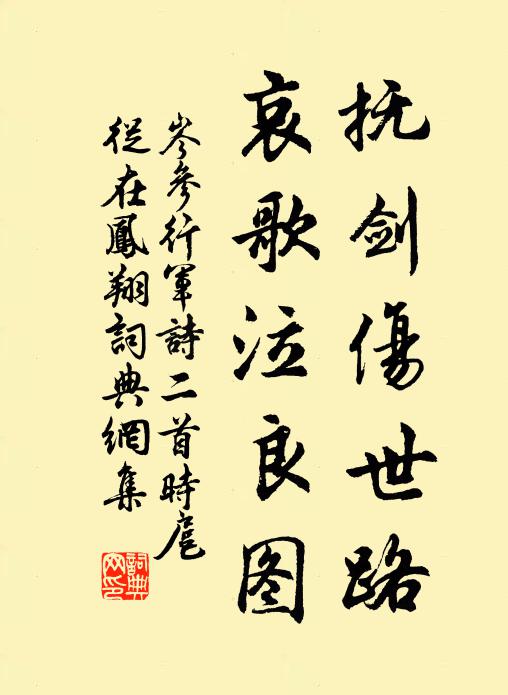 抚剑傷世路
哀歌泣良图
岑參行軍詩二首時扈
從在鳳翔詞典網集
詞典
网印